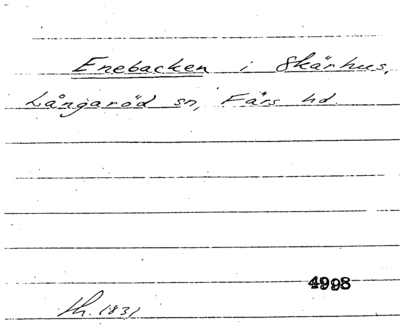 Enebacken i Skärhus,
Långaröd sn, Färs hd.
4998
th. 1831